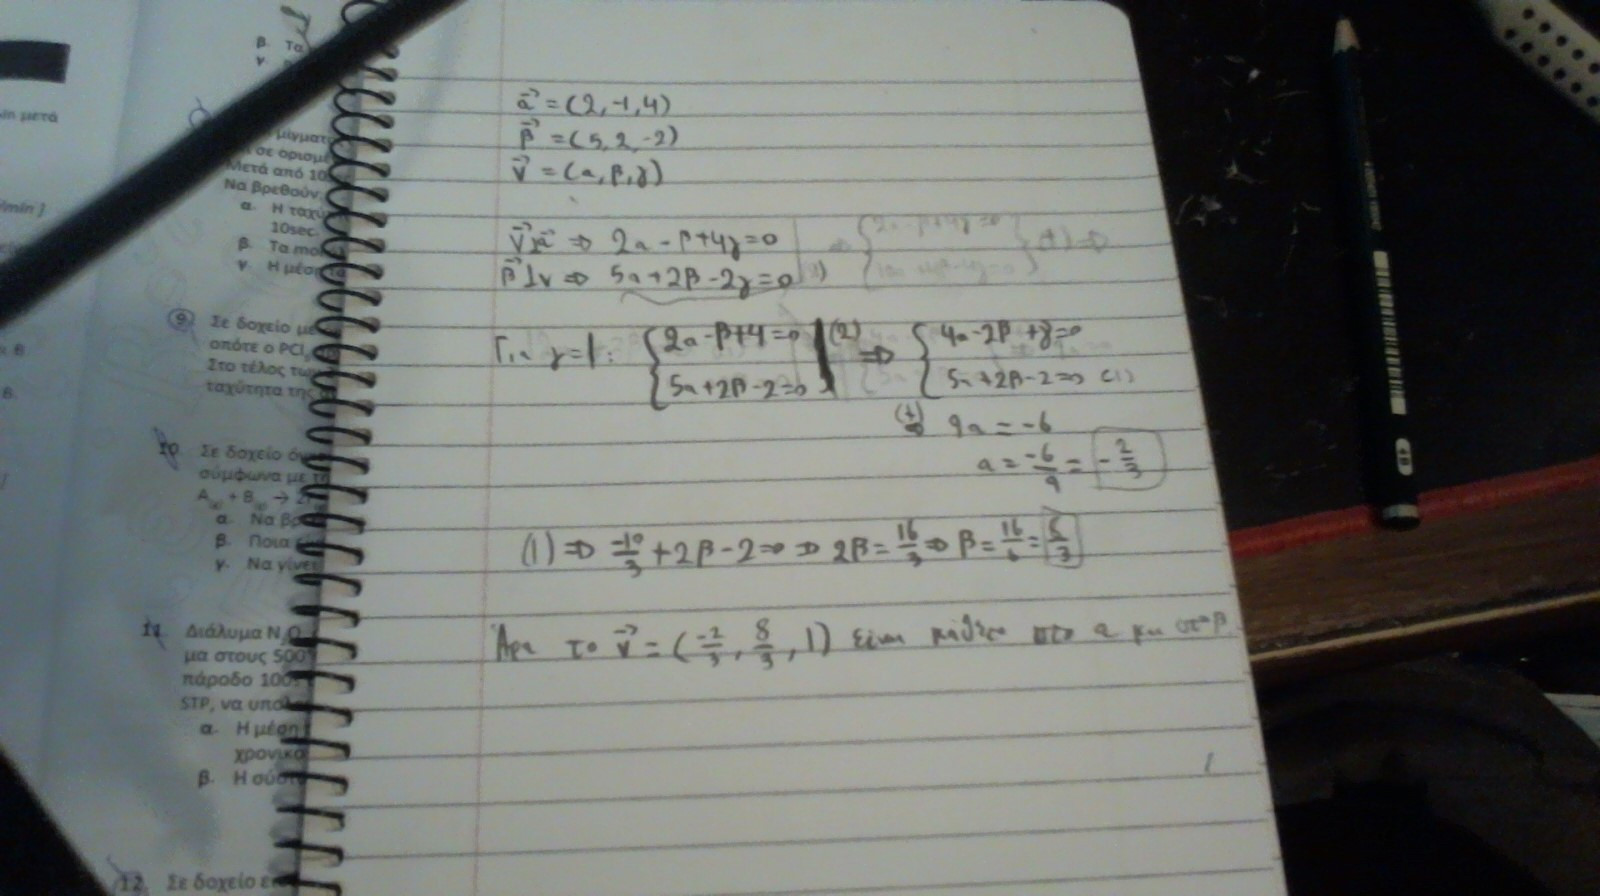 β. Τα
γ.
οιπ μετά
μίγματ
σε ορισμέ
Μετά από 10
Να βρεθούν:
/min ]
α. Η ταχύ
10sec.
β. Τα mol
γ. Η μέση
9 Σε δοχείο με
οπότε ο PCl
Στο τέλος των
ταχύτητα της
10. Σε δοχείο όγκ
σύμφωνα με τ
A(g) + B(g) → 2
α. Να βρ
β. Ποια
γ. Να γίνει
11. Διάλυμα N₂O
μα στους 500
πάροδο 100
STP, να υπολ
α. Η μέση
χρονικό
β. Η σύστ
12. Σε δοχείο
α⃗ = (2, -1, 4)
β⃗ = (5, 2, -2)
v⃗ = (α, β, γ)
v⃗⊥α⃗ ⇒ 2α - β + 4γ = 0
β⃗⊥v ⇒ 5α + 2β - 2γ = 0
Για γ = 1: { 2α - β + 4 = 0 | (2) ⇒ { 4α - 2β + 8 = 0
5α + 2β - 2 = 0 | 5α + 2β - 2 = 0 (1)
(+) ⇒ 9α = -6
α = -6/9 = -2/3
(1) ⇒ -10/3 + 2β - 2 = 0 ⇒ 2β = 16/3 ⇒ β = 16/6 = 8/3
Άρα το v⃗ = (-2/3, 8/3, 1) είναι κάθετο στο α και στο β